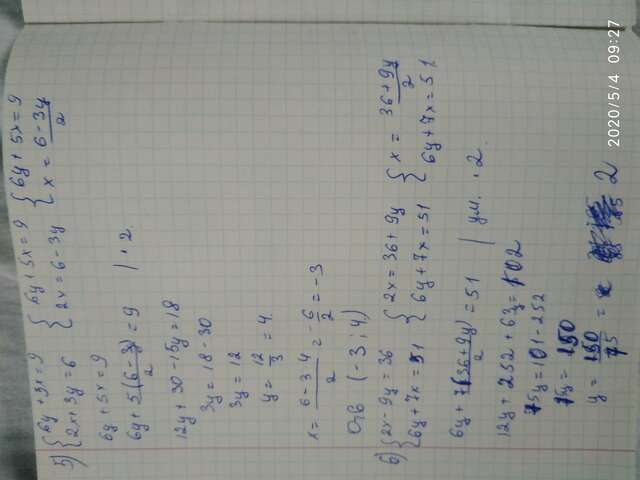 5) {6y + 5x = 9 {6y + 5x = 9 {6y + 5x = 9
{2x + 3y = 6 {2x = 6 - 3y {x = (6 - 3y)/2
6y + 5x = 9
6y + 5(6 - 3y)/2 = 9 | · 2
12y + 30 - 15y = 18
3y = 18 - 30
3y = 12
y = 12/3 = 4
x = (6 - 3·4)/2 = -6/2 = -3
Отв (-3; 4)
6) {2x - 9y = 36 {2x = 36 + 9y {x = (36 + 9y)/2
{6y + 7x = 51 {6y + 7x = 51 {6y + 7x = 51
6y + 7(36 + 9y)/2 = 51 | ум. · 2
12y + 252 + 63y = 102
75y = 101 - 252
75y = 150
y = 150/75 = 2
2020/5/4 09:27